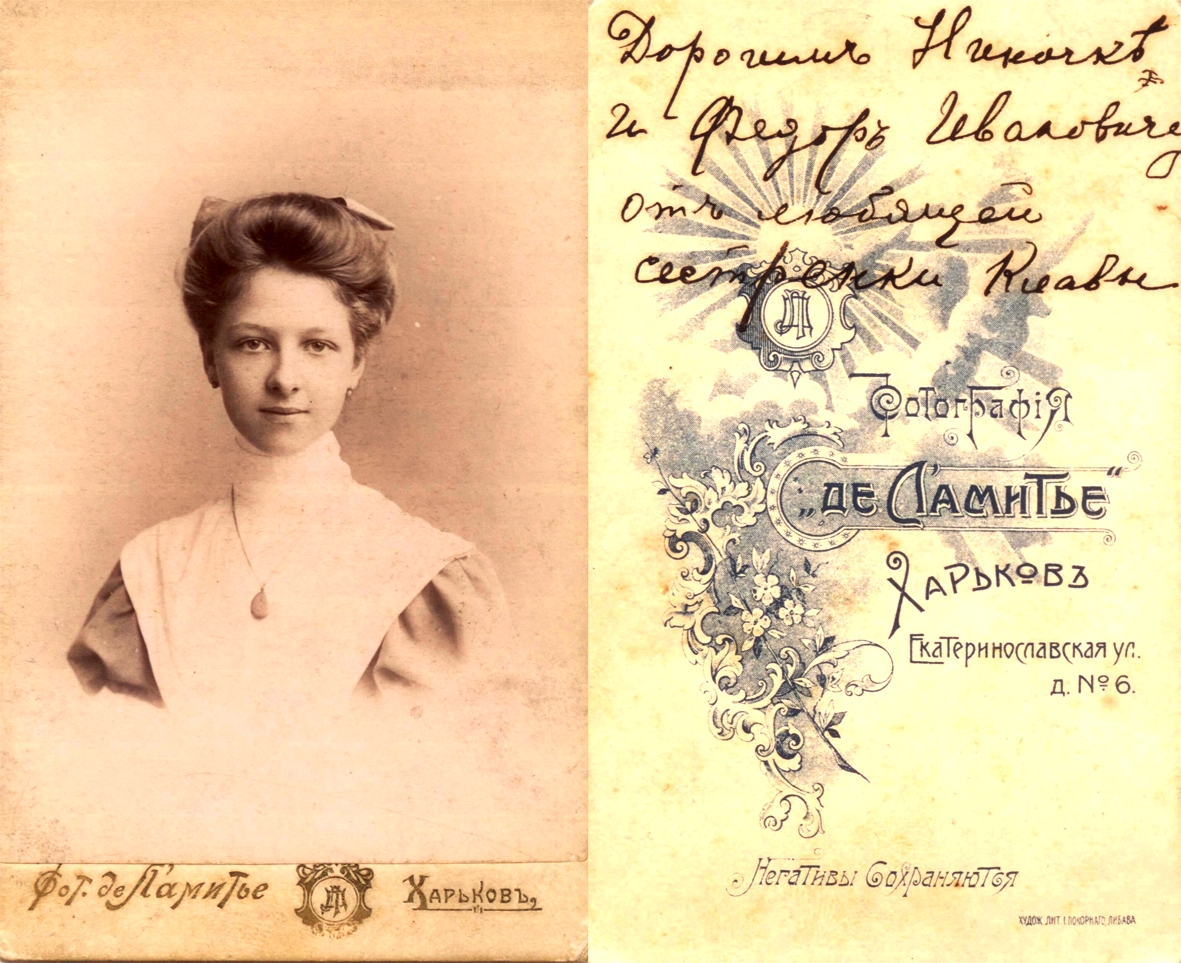 Фот. де Ламитье
ДЛ
Харьковъ,
Дорогимъ Ниночкѣ
и Федоръ Ивановичу
отъ любящей
сестренки Клавы
ДЛ
Фотографія
„де Л'амитье“
Харьковъ
Екатеринославская ул.
д. № 6.
Негативы Сохраняются
ХУДОЖ. ЛИТ. І. ПОКОРНАГО, ЛИБАВА.